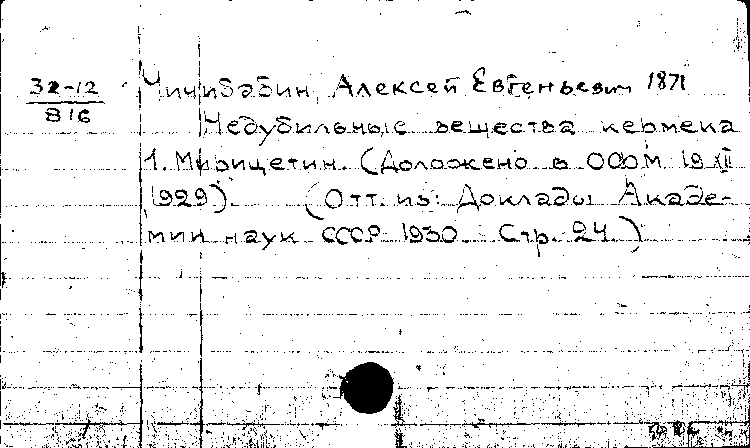 32-12
816
Чичибабин, Алексей Евгеньевич 1871
Недубильные вещества кермека
1. Мирицетин. (Доложено в ОФМ 19 XII
1929). (Отт. из: Доклады Акаде-
мии наук СССР 1930. Стр. 24.)